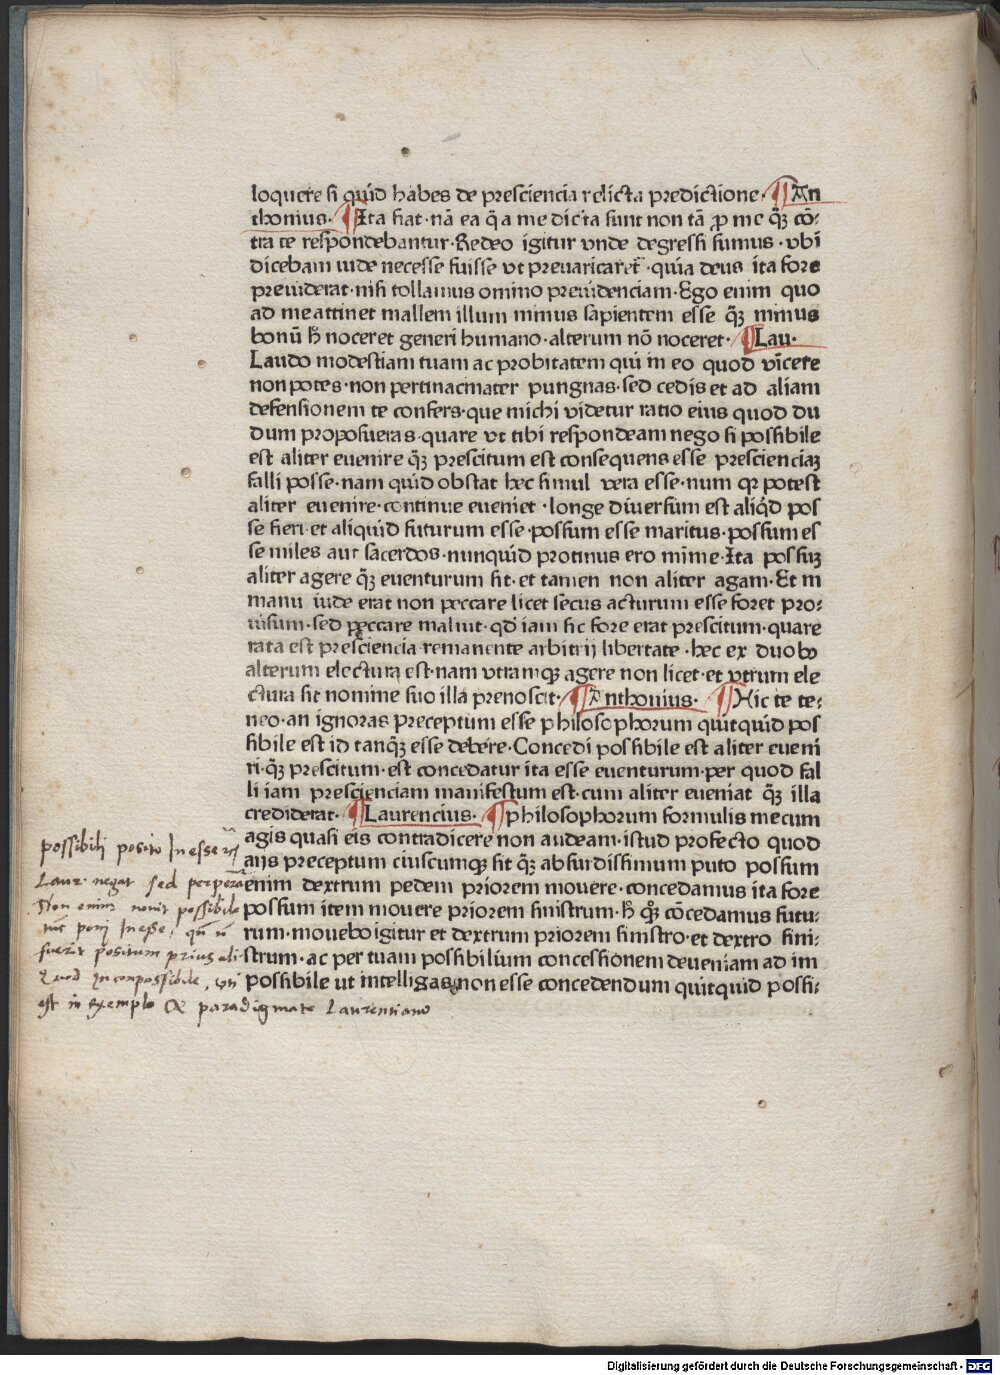 loquere si quid habes de presciencia relicta predictione· ¶An
thonius· ¶Ita fiat·nā ea q̄ a me dicta sunt non tā ꝓ me q̄ꝫ cō-
tra te respondebantur·Redeo igitur vnde degressi sumus·vbi
dicebam iude necesse fuisse vt preuaricaret̄·quia deus ita fore
preuiderat·nisi tollamus omino preuidenciam·Ego enim quo
ad me attinet mallem illum minus sapientem esse q̄ꝫ minus
bonū h̄ noceret generi humano·alterum nō noceret· ¶Lau·
Laudo modestiam tuam ac probitatem qui in eo quod vīcere
non potes·non pertinaciniater pungnas·sed cedis et ad aliam
defensionem te confers·que michi videtur ratio eius quod du
dum proposueras·quare vt tibi respondeam nego si possibile
est aliter euenire q̄ꝫ prescitum est consequens esse prescienciaꝫ
falli posse·nam quid obstat hec simul vera esse·num qꝛ potest
aliter euenire·continue eueniet·longe diuersum est aliq̄d pos
se fieri·et aliquid futurum esse·possum esse maritus·possum es
se miles aut sacerdos·nunquid protinus ero mīme·Ita possuꝫ
aliter agere q̄ꝫ euenturum sit·et tamen non aliter agam·Et in
manu iude erat non peccare licet secus acturum esse foret pro-
uisum·sed peccare maluit·qd̄ iam sic fore erat prescitum·quare
rata est presciencia·remanente arbitrij libertate·hec ex duobo
alterum electura est·nam vtramqꝫ agere non licet·et vtrum ele
ctura sit nomine suo illa prenoscit· ¶Anthonius· ¶Hic te te-
neo·an ignoras preceptum esse philosophorum quitquid pos
sibile est id tanq̄ꝫ esse debere·Concedi possibile est aliter eueni
ri·q̄ꝫ prescitum·est concedatur ita esse euenturum·per quod fal
li iam prescienciam manifestum est·cum aliter eueniat q̄ꝫ illa
crediderat· ¶Laurencius· ¶philosophorum formulis mecum
agis quasi eis contradicere non audeam·istud profecto quod
aijs preceptum cuiuscumqꝫ sit q̄ꝫ absurdissimum puto possum
enim dextrum pedem priorem mouere·concedamus ita fore
possum item mouere priorem sinistrum·h̄ qꝫ cōcedamus futu-
rum·mouebo igitur et dextrum priorem sinistro·et dextro sini-
strum·ac per tuam possibilium concessionem deueniam ad im
possibile ut intelligas non esse concedendum quitquid possi-
possibili posito Inesse
Laur. negat sed perperā
Non enim novit possibile
tūc poni Inesse, qn̄ nō
fuerit positum prius ali
Quod Inconpossibile, vti
est in exemplo & paradigmate Laurentiano
Digitalisierung gefördert durch die Deutsche Forschungsgemeinschaft - DFG